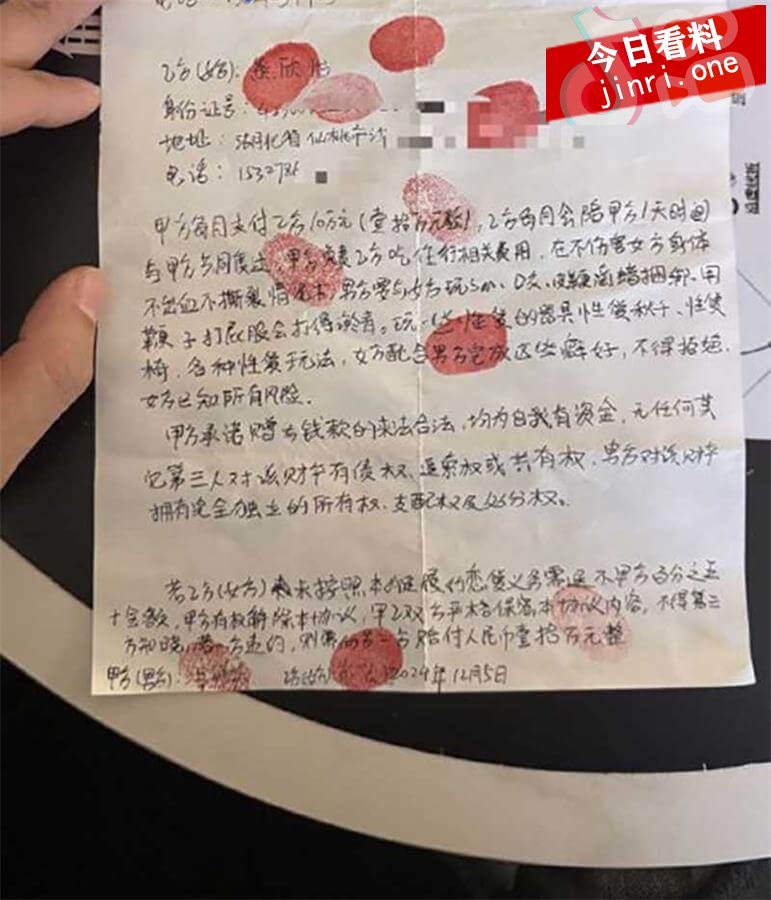 今日看料
jinri.one
乙方(女方):
身份证号:
地址: 湖北省仙桃市
电话: 1532786
甲方每月支付乙方10万元(壹拾万元整),乙方每月会陪甲方1天时间
与甲方 甲方负责乙方吃住行相关费用,在不伤害女方身体
不出血不撕裂情况下,男方需与女方玩sm、
鞭子打屁股会打得淤青。玩一些性爱的器具性爱秋千、性爱
椅,各种性爱玩法,女方配合男方完成这些癖好,不得拒绝.
女方已知所有风险.
甲方承诺赠与钱款的来法合法,均为自我有资金,无任何其
它第三人对该财产有债权、追索权或共有权,男方对该财产
拥有完全独立的所有权、支配权及处分权。
若乙方(女方)未按照 义务需退还甲方百分之五
十金额,甲方有权解除本协议,甲乙双方严格保密本协议内容,不得第三
方知晓,若一方违约,则需向另一方赔付人民币壹拾万元整
甲方(男方): 2024年12月5日